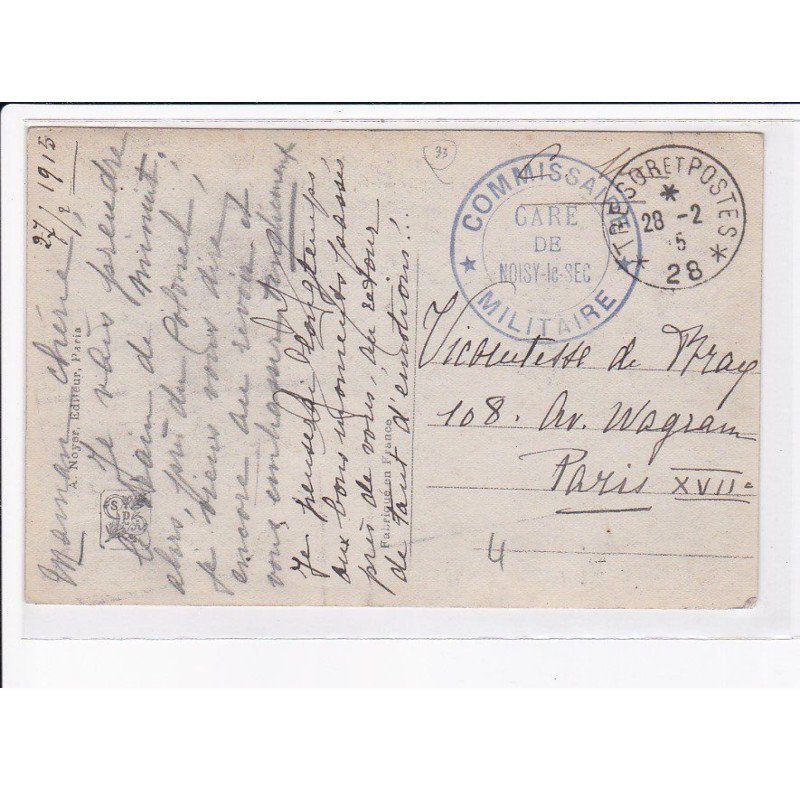 27/2 1915
Maman chérie,
Je vais prendre
le train de minuit,
alors, près du Colonel,
je viens vous dire
encore au revoir et
vous embrasser longuement
Je penserai longtemps
aux bons moments passés
près de vous, au retour
de tant d'émotions!..
A. Noyer, Editeur, Paris
Fabriqué en France
33
F. M.
COMMISSA
MILITAIRE
GARE
DE
NOISY-le-SEC
TRESOR ET POSTES
28 -2
5
28
Vicomtesse de Bray
108. Av. Wagram
Paris XVIIe
4